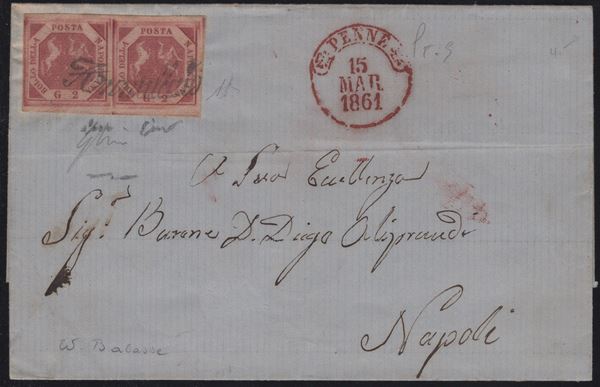 BOLLO DELLA POSTA NAPOLETANA G. 2
BOLLO DELLA POSTA NAPOLETANA G. 2
Annullato
PENNE
15
MAR.
1861
A Sua Eccellenza
Sig.r Barone D. Diego Aliprandi
Napoli
W. Balasse